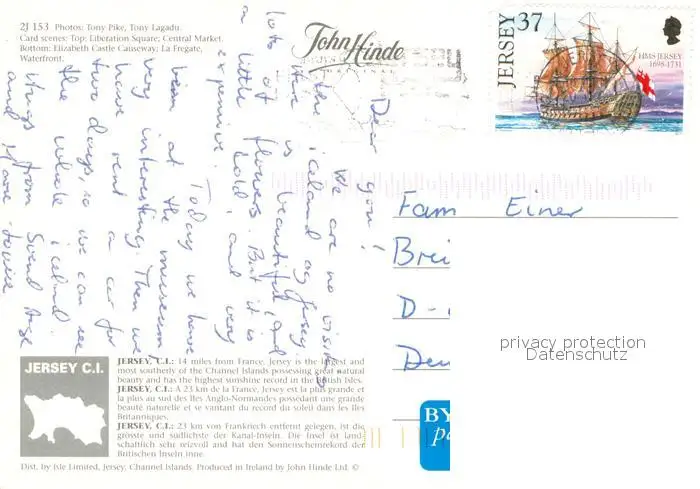 2J 153 Photos: Tony Pike, Tony Lagadu.
Card scenes: Top: Liberation Square; Central Market.
Bottom: Elizabeth Castle Causeway; La Fregate,
Waterfront.
John Hinde
ORIGINAL
JERSEY 37
HMS JERSEY
1698-1731
Dear you!
We are no visiting
the iceland og Jersey.
Her is beautiful, and
lots of flowers. But it is
a little cold, and very
expensive.
Today we have
been at the museum
very interesting. Then we
have rent a car for
two days, so we can see
the whole iceland.
things from Svend Aage
and Mare-Louise
Fam Einer
Brei
D-
Deu
privacy protection
Datenschutz
BY
pa
JERSEY C.I.
JERSEY, C.I.: 14 miles from France, Jersey is the largest and
most southerly of the Channel Islands possessing great natural
beauty and has the highest sunshine record in the British Isles.
JERSEY, C.I.: A 23 km de la France, Jersey est la plus grande et
la plus au sud des îles Anglo-Normandes possédant une grande
beauté naturelle et se vantant du record du soleil dans les îles
Britanniques.
JERSEY, C.I.: 23 km von Frankriech entfernt gelegen, ist die
grösste und südlichste der Kanal-Inseln. Die Insel ist land-
schaftlich sehr reizvoll and hat den Sonnenscheinrekord der
Britischen Inseln inne.
Dist. by Isle Limited, Jersey, Channel Islands. Produced in Ireland by John Hinde Ltd. ©